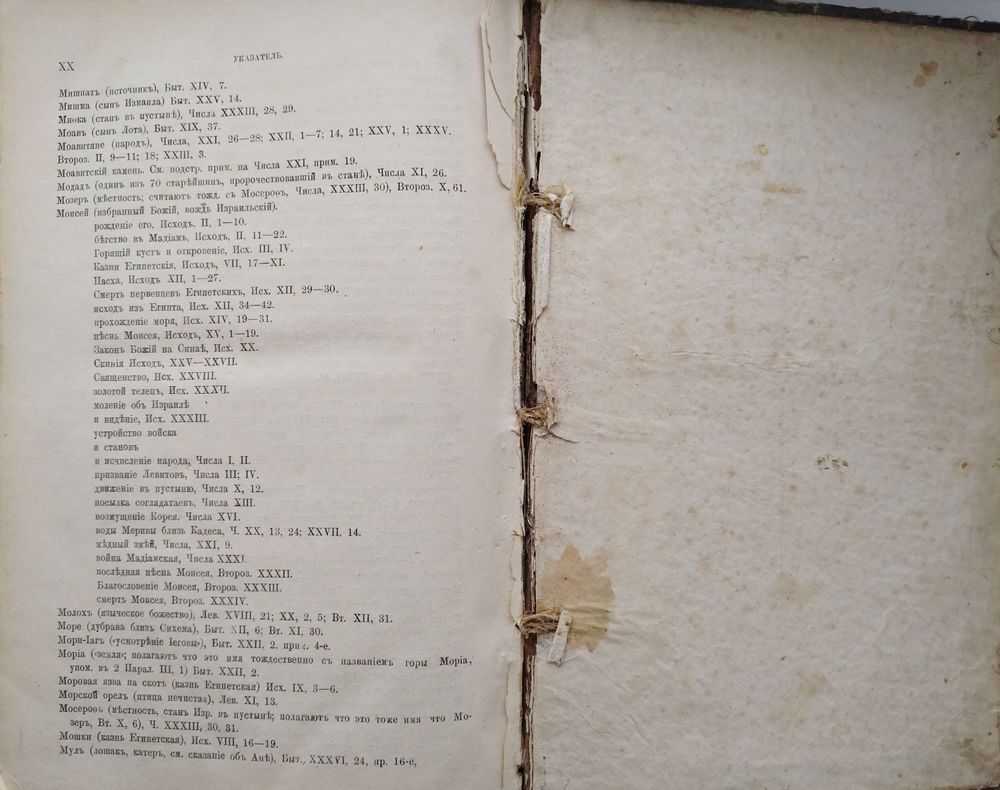 XX
УКАЗАТЕЛЬ.
Мишпатъ (источникъ), Быт. XIV, 7.
Мишма (сынъ Измаила) Быт. XXV, 14.
Миока (станъ въ пустынѣ), Числа XXXIII, 28, 29.
Моавъ (сынъ Лота), Быт. XIX, 37.
Моавитяне (народъ), Числа, XXI, 26—28; XXII, 1—7; 14, 21; XXV, 1; XXXV.
Второз. II, 9—11; 18; XXIII, 3.
Моавитскій камень. См. подстр. прим. на Числа XXI, прим. 19.
Модадъ (одинъ изъ 70 старѣйшинъ, пророчествовавшій въ станѣ), Числа XI, 26.
Мозеръ (мѣстность; считаютъ тожд. съ Мосероѳъ, Числа, XXXIII, 30), Второз. X, 61.
Моисей (избранный Божій, вождь Израильскій).
рожденіе его. Исходъ, II, 1—10.
бѣгство въ Мадіамъ, Исходъ, II, 11—22.
Горящій кустъ и откровеніе, Исх. III, IV.
Казни Египетскія, Исходъ, VII, 17—XI.
Пасха, Исходъ XII, 1—27.
Смерть первенцевъ Египетскихъ, Исх. XII, 29—30.
исходъ изъ Египта, Исх. XII, 34—42.
прохожденіе моря, Исх. XIV, 19—31.
пѣснь Моисея, Исходъ, XV, 1—19.
Законъ Божій на Синаѣ, Исх. XX.
Скинія Исходъ, XXV—XXVII.
Священство, Исх. XXVIII.
золотой телецъ, Исх. XXXII.
моленіе объ Израилѣ
и видѣніе, Исх. XXXIII.
устройство войска
и становъ
и исчисленіе народа, Числа I, II.
призваніе Левитовъ, Числа III; IV.
движеніе въ пустыню, Числа X, 12.
посылка соглядатаевъ, Числа XIII.
возмущеніе Корея, Числа XVI.
воды Меривы близь Кадеса, Ч. XX, 13, 24; XXVII, 14.
мѣдный змѣй, Числа, XXI, 9.
война Мадіамская, Числа XXXI.
послѣдняя пѣснь Моисея, Второз. XXXII.
Благословеніе Моисея, Второз. XXXIII.
смерть Моисея, Второз. XXXIV.
Молохъ (языческое божество), Лев. XVIII, 21; XX, 2, 5; Вт. XII, 31.
Море (дубрава близъ Сихема), Быт. XII, 6; Вт. XI, 30.
Мори-Іагъ («усмотрѣніе Іеговы»), Быт. XXII, 2, прим. 4-е.
Моріа («земля»; полагаютъ что это имя тождественно съ названіемъ горы Моріа,
упом. въ 2 Парал. III, 1) Быт. XXII, 2.
Моровая язва на скотъ (казнь Египетская) Исх. IX, 3—6.
Морской орелъ (птица нечистая), Лев. XI, 13.
Мосероѳъ (мѣстность, станъ Изр. въ пустынѣ; полагаютъ что это тоже имя что Мо-
зеръ, Вт. X, 6), Ч. XXXIII, 30, 31.
Мошки (казнь Египетская), Исх. VIII, 16—19.
Мулъ (лошакъ, катеръ, см. сказаніе объ Анѣ), Быт., XXXVI, 24, пр. 16-е,